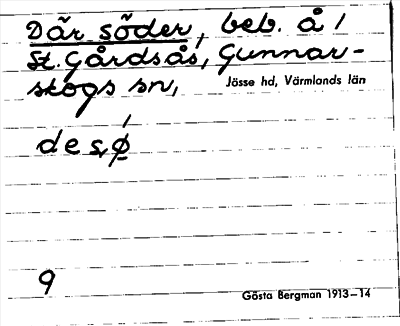 Där söder, beb. å /
St. Gårdsås, Gunnar-
skogs sn,
Jösse hd, Värmlands län
9
Gösta Bergman 1913–14